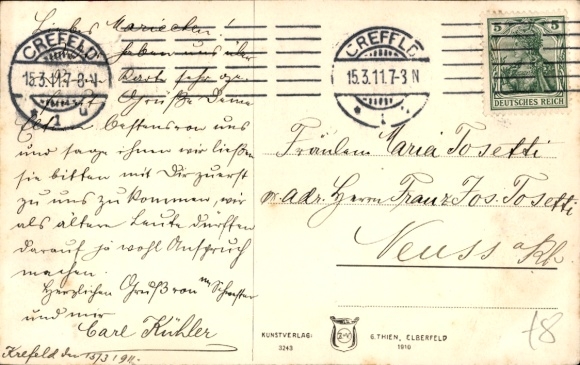 Liebes Mariechen!
haben uns über
Karte sehr ge
Grüße Deine
Eltern bestens von uns
und sage ihnen wir ließen
sie bitten mit Dir zuerst
zu uns zu kommen, wir
als ältere Leute dürften
darauf ja wohl Anspruch
machen.
Herzlichen Gruß von Schwester
und mir
Carl Kühler
Krefeld den 15/3 1911.
CREFELD
15.3.11.7-8 N
* 1 u
CREFELD
15.3.11.7-8 N
5 5
DEUTSCHES REICH
Fräulein Maria Tosetti
adr. Herrn Franz Jos. Tosetti
Neuss a/Rh.
KUNSTVERLAG:
3243
G. THIEN, ELBERFELD
1910
78